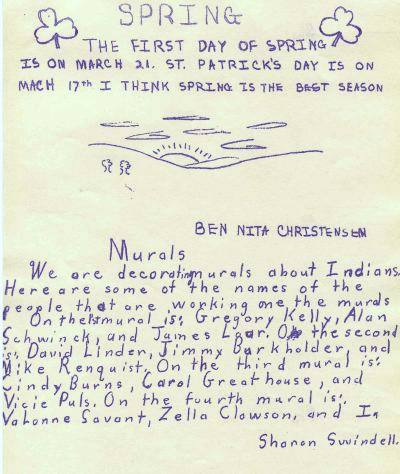 SPRING
THE FIRST DAY OF SPRING
IS ON MARCH 21. ST. PATRICK'S DAY IS ON
MACH 17th I THINK SPRING IS THE BEST SEASON
BEN NITA CHRISTENSEN
Murals
We are decorating murals about Indians.
Here are some of the names of the
people that are working one the murals
On the 1st mural is: Gregory Kelly, Alan
Schwinck, and James Loar. On the second
is: David Linder, Jimmy Burkholder, and
Mike Renquist. On the third mural is:
Cindy Burns, Carol Greathouse, and
Vicie Puls. On the fourth mural is:
Vahonne Savant, Zella Clowson, and I.
Sharon Swindell.